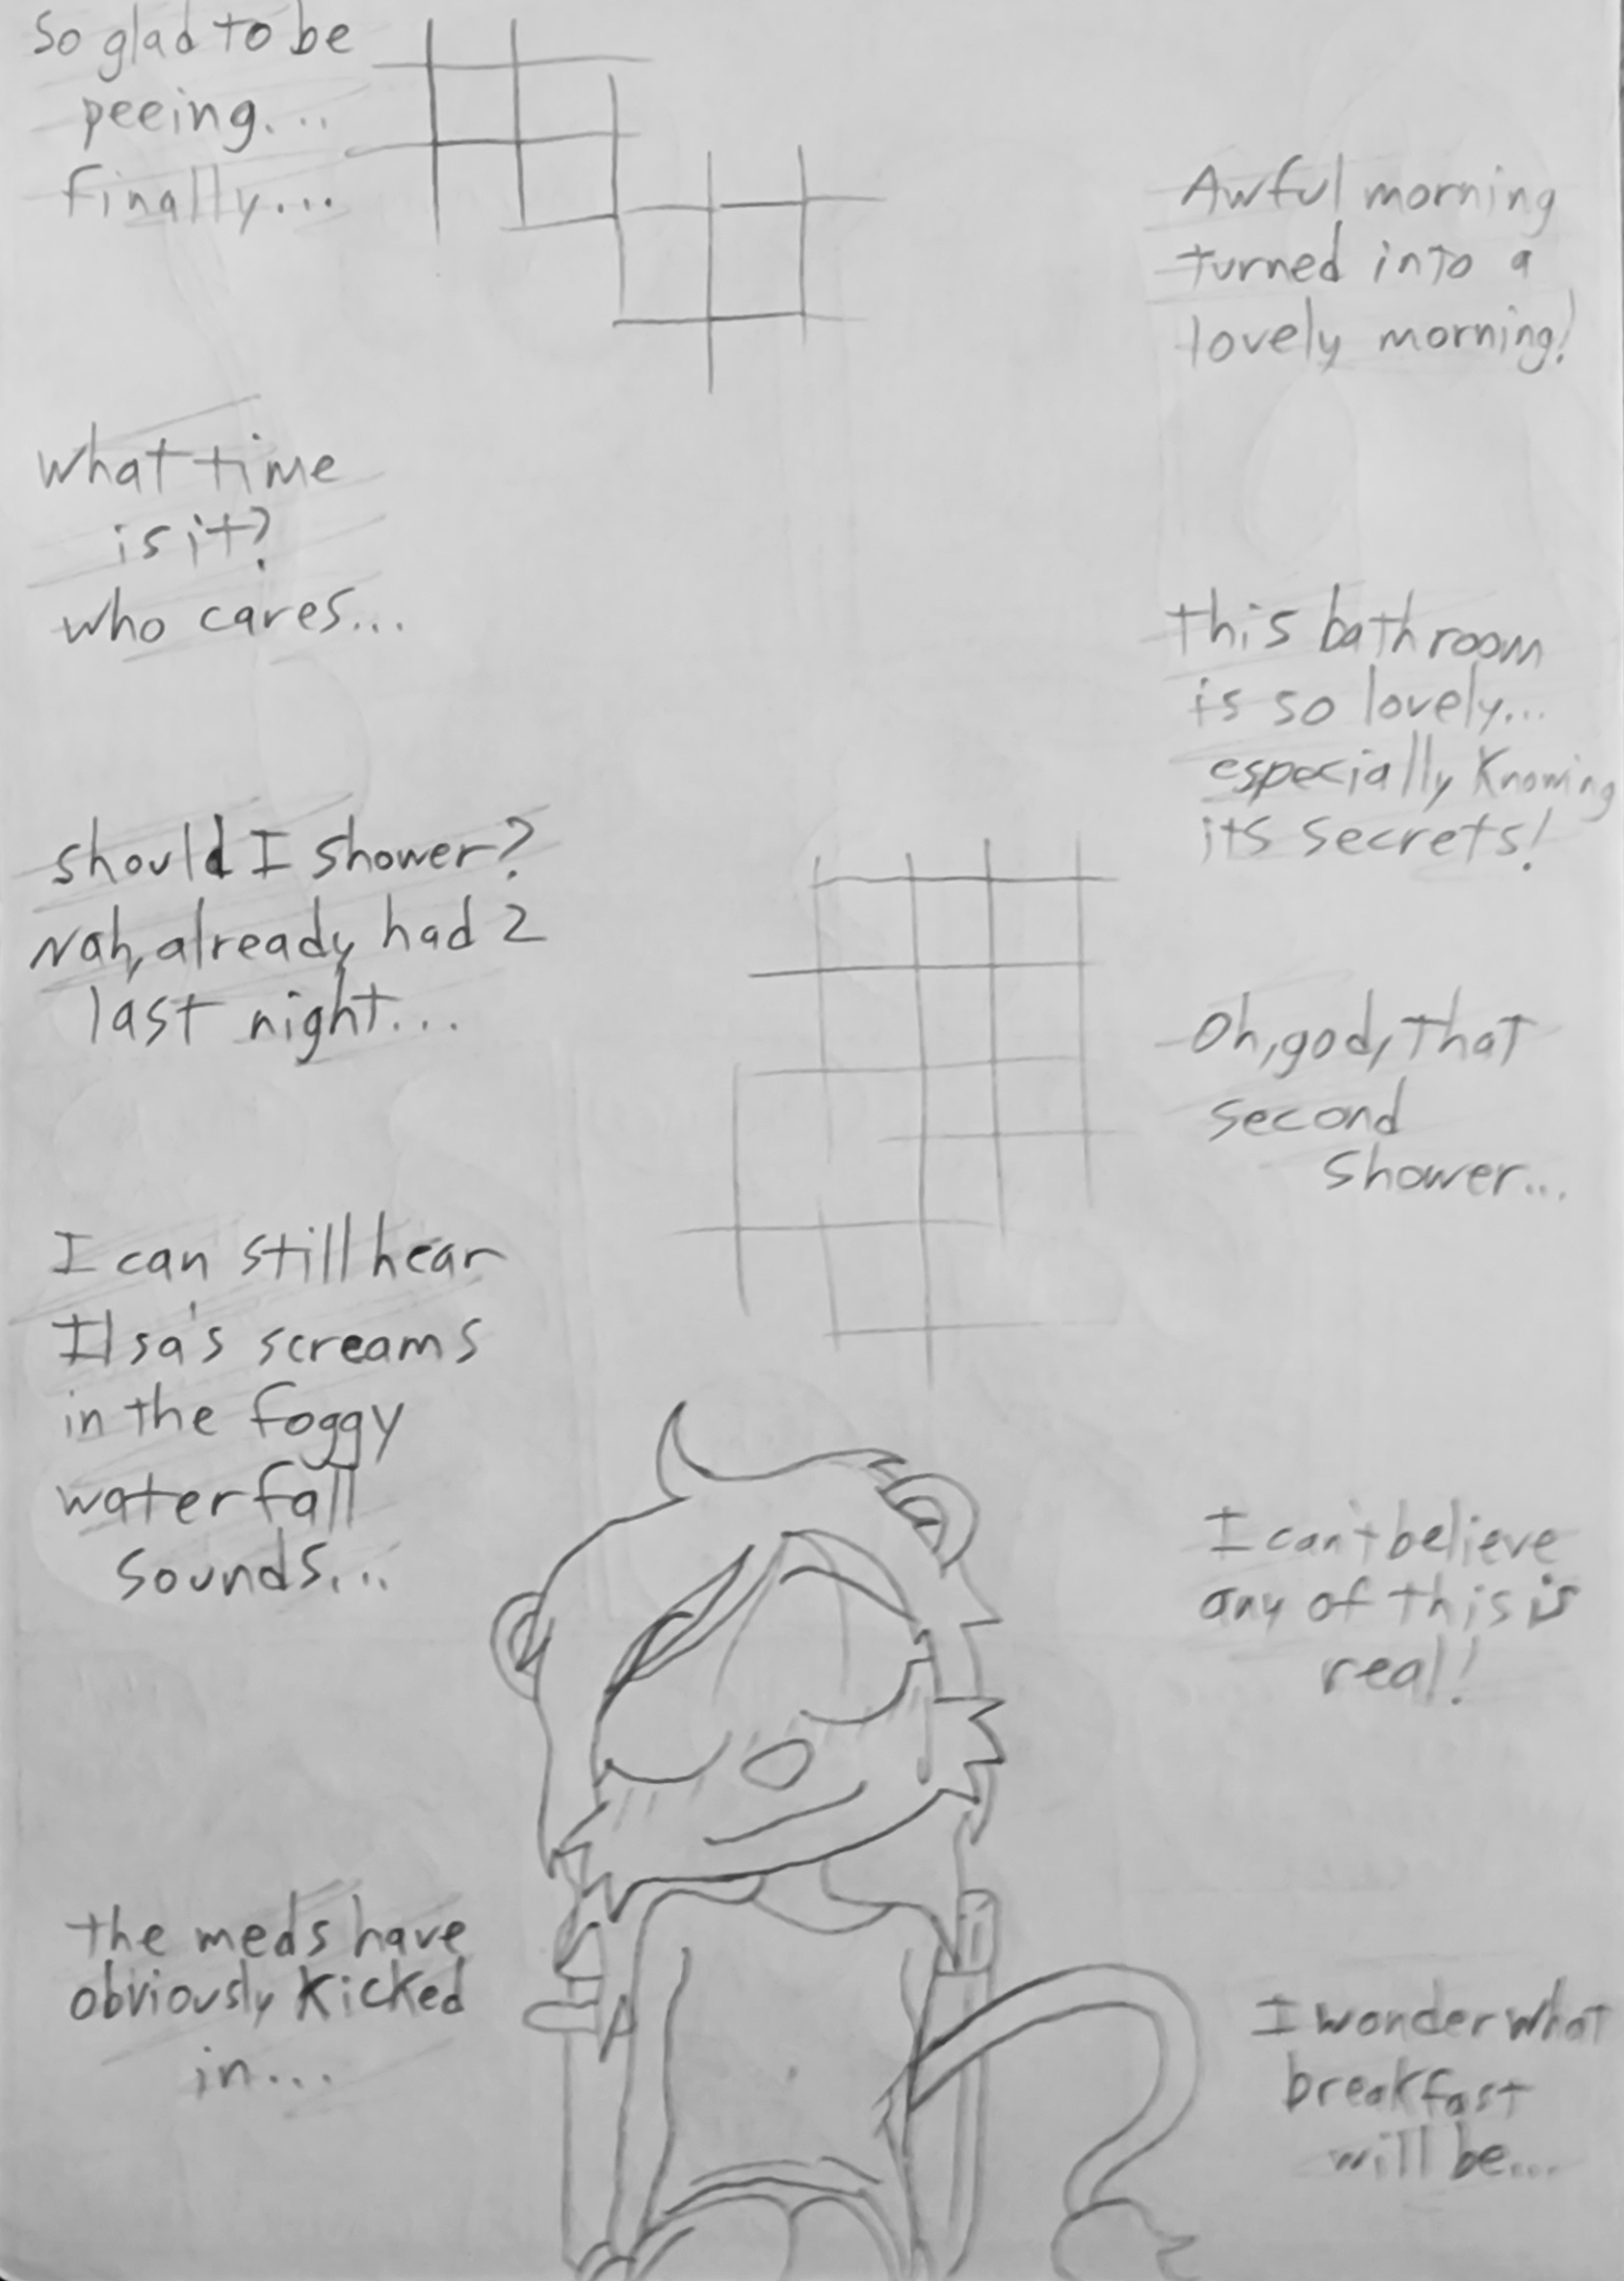 So glad to be
peeing...
finally...
Awful morning
turned into a
lovely morning!
what time
is it?
who cares...
this bathroom
is so lovely...
especially knowing
its secrets!
should I shower?
Nah, already had 2
last night...
Oh, god, that
second
shower...
I can still hear
Ilsa's screams
in the foggy
waterfall
sounds...
I can't believe
any of this is
real!
the meds have
obviously kicked
in...
I wonder what
breakfast
will be...